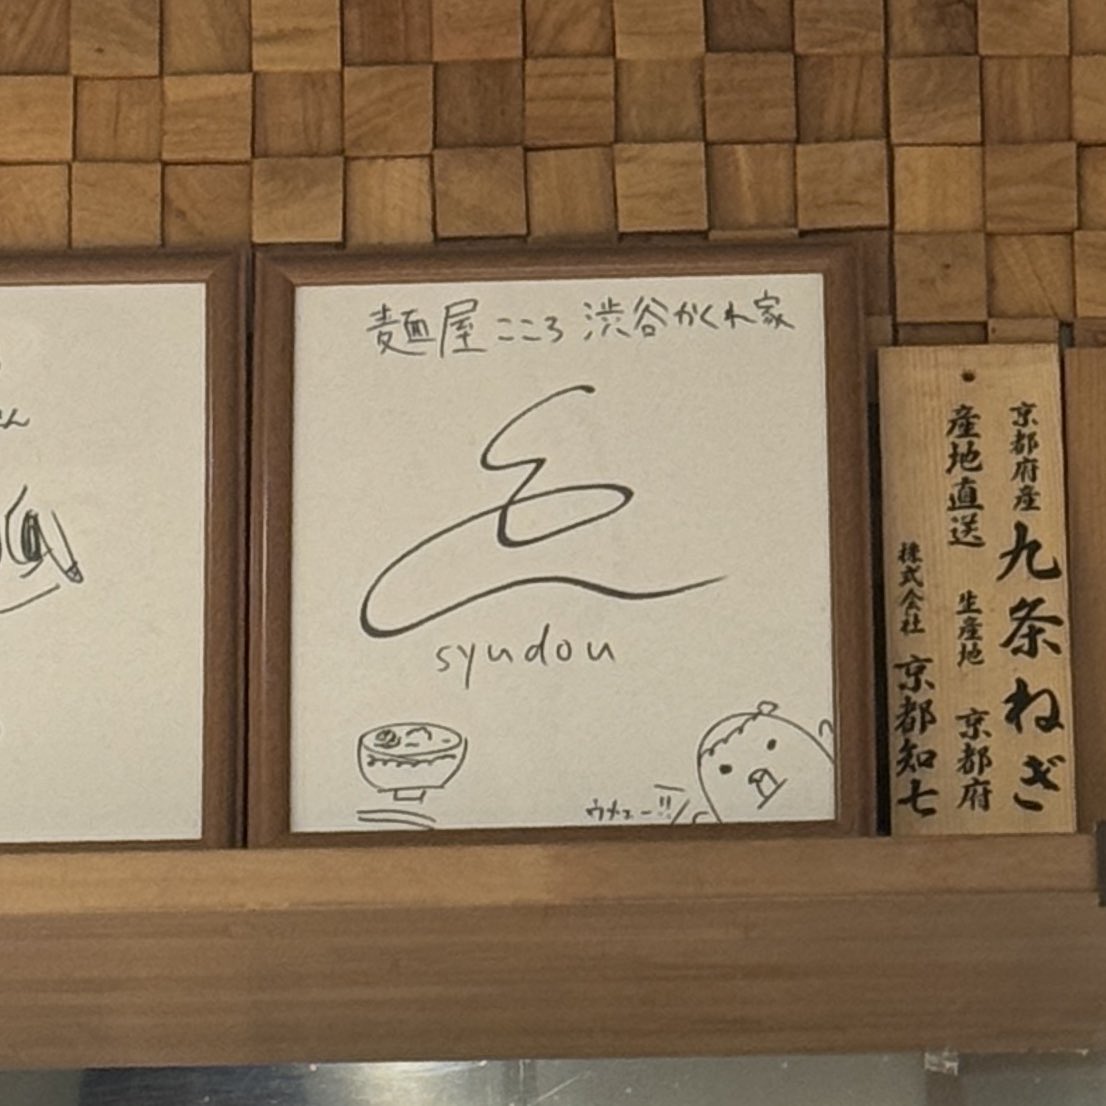 麺屋こころ 渋谷かくれ家
syudou
ウメェー!!
京都府産 九条ねぎ
産地直送 生産地 京都府
株式会社 京都知七